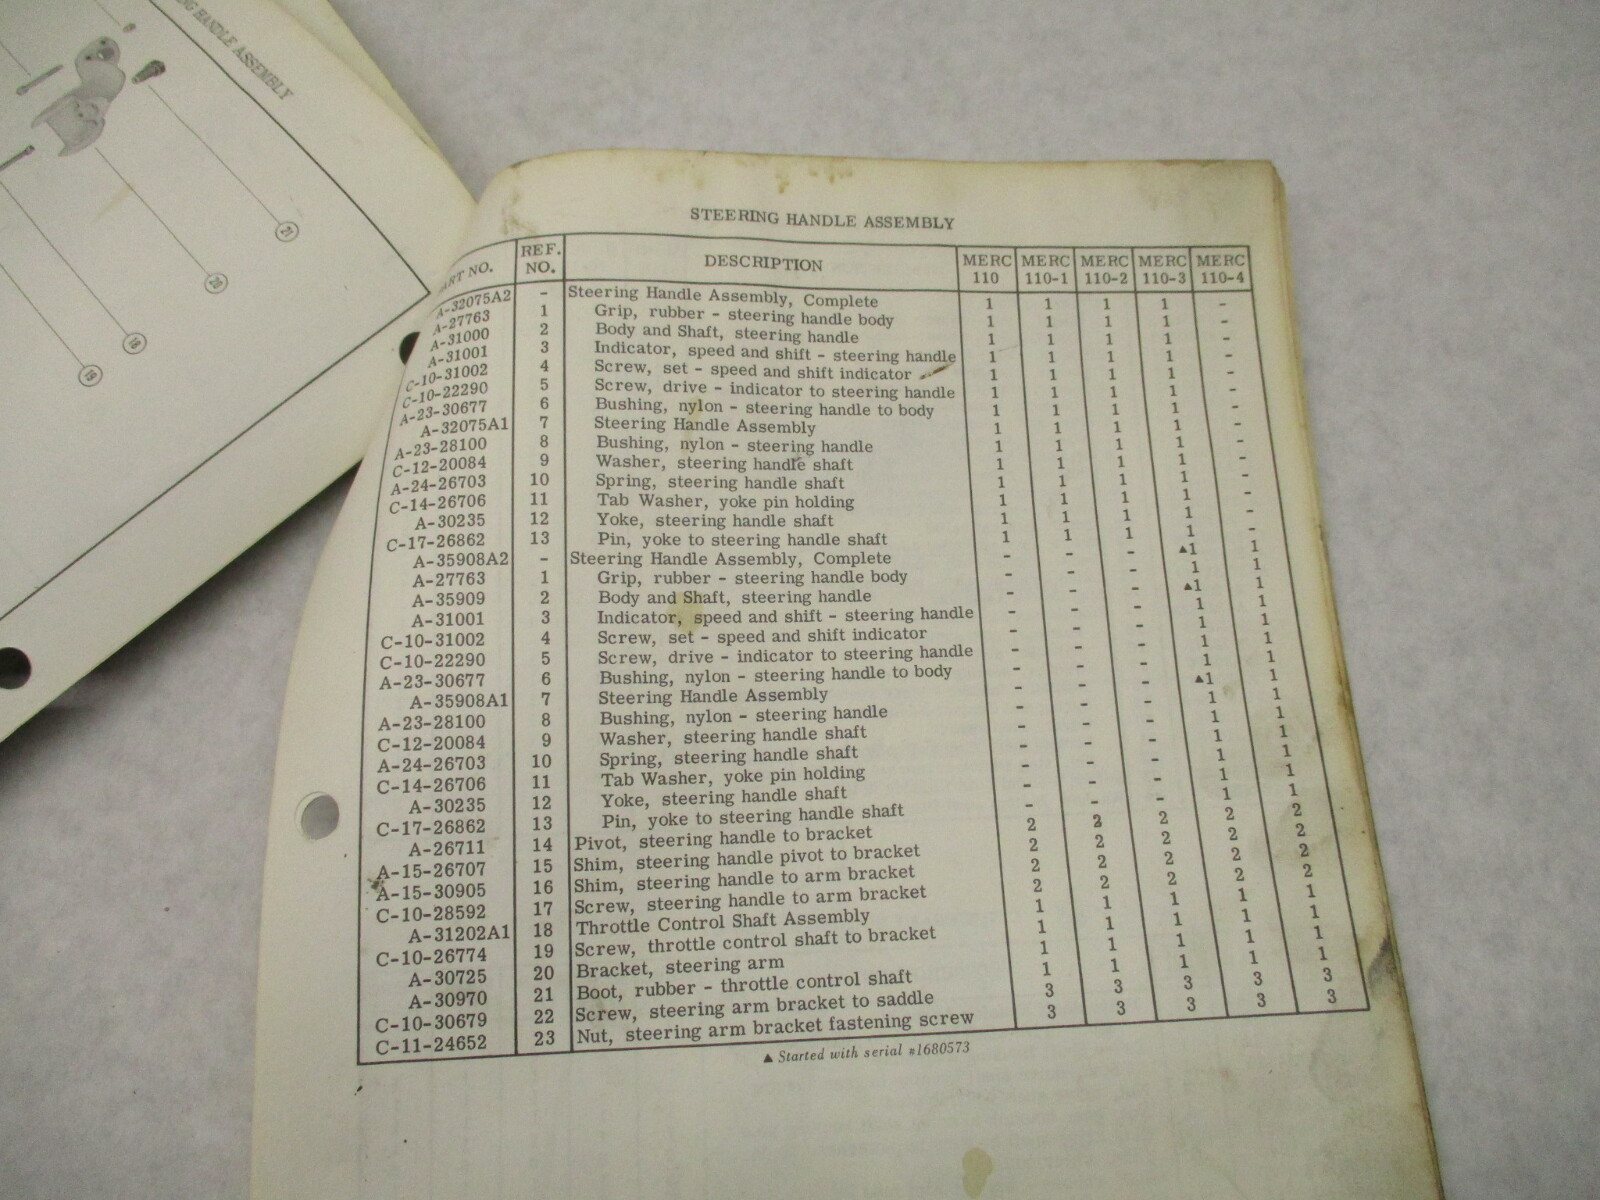 NG HANDLE ASSEMBLY
21
20
18
19
STEERING HANDLE ASSEMBLY
ART NO. REF. NO. DESCRIPTION MERC 110 MERC 110-1 MERC 110-2 MERC 110-3 MERC 110-4
A-32075A2 - Steering Handle Assembly, Complete 1 1 1 1 -
A-27763 1 Grip, rubber - steering handle body 1 1 1 1 -
A-31000 2 Body and Shaft, steering handle 1 1 1 1 -
A-31001 3 Indicator, speed and shift - steering handle 1 1 1 1 -
C-10-31002 4 Screw, set - speed and shift indicator 1 1 1 1 -
C-10-22290 5 Screw, drive - indicator to steering handle 1 1 1 1 -
A-23-30677 6 Bushing, nylon - steering handle to body 1 1 1 1 -
A-32075A1 7 Steering Handle Assembly 1 1 1 1 -
A-23-28100 8 Bushing, nylon - steering handle 1 1 1 1 -
C-12-20084 9 Washer, steering handle shaft 1 1 1 1 -
A-24-26703 10 Spring, steering handle shaft 1 1 1 1 -
C-14-26706 11 Tab Washer, yoke pin holding 1 1 1 1 -
A-30235 12 Yoke, steering handle shaft 1 1 1 1 -
C-17-26862 13 Pin, yoke to steering handle shaft 1 1 1 1 -
A-35908A2 - Steering Handle Assembly, Complete - - - ▲1 1
A-27763 1 Grip, rubber - steering handle body - - - 1 1
A-35909 2 Body and Shaft, steering handle - - - ▲1 1
A-31001 3 Indicator, speed and shift - steering handle - - - 1 1
C-10-31002 4 Screw, set - speed and shift indicator - - - 1 1
C-10-22290 5 Screw, drive - indicator to steering handle - - - 1 1
A-23-30677 6 Bushing, nylon - steering handle to body - - - 1 1
A-35908A1 7 Steering Handle Assembly - - - ▲1 1
A-23-28100 8 Bushing, nylon - steering handle - - - 1 1
C-12-20084 9 Washer, steering handle shaft - - - 1 1
A-24-26703 10 Spring, steering handle shaft - - - 1 1
C-14-26706 11 Tab Washer, yoke pin holding - - - 1 1
A-30235 12 Yoke, steering handle shaft - - - 1 1
C-17-26862 13 Pin, yoke to steering handle shaft - - - 1 1
A-26711 14 Pivot, steering handle to bracket 2 2 2 2 2
A-15-26707 15 Shim, steering handle pivot to bracket 2 2 2 2 2
A-15-30905 16 Shim, steering handle to arm bracket 2 2 2 2 2
C-10-28592 17 Screw, steering handle to arm bracket 2 2 2 2 2
A-31202A1 18 Throttle Control Shaft Assembly 1 1 1 1 1
C-10-26774 19 Screw, throttle control shaft to bracket 1 1 1 1 1
A-30725 20 Bracket, steering arm 1 1 1 1 1
A-30970 21 Boot, rubber - throttle control shaft 1 1 1 1 1
C-10-30679 22 Screw, steering arm bracket to saddle 3 3 3 3 3
C-11-24652 23 Nut, steering arm bracket fastening screw 3 3 3 3 3
▲ Started with serial #1680573